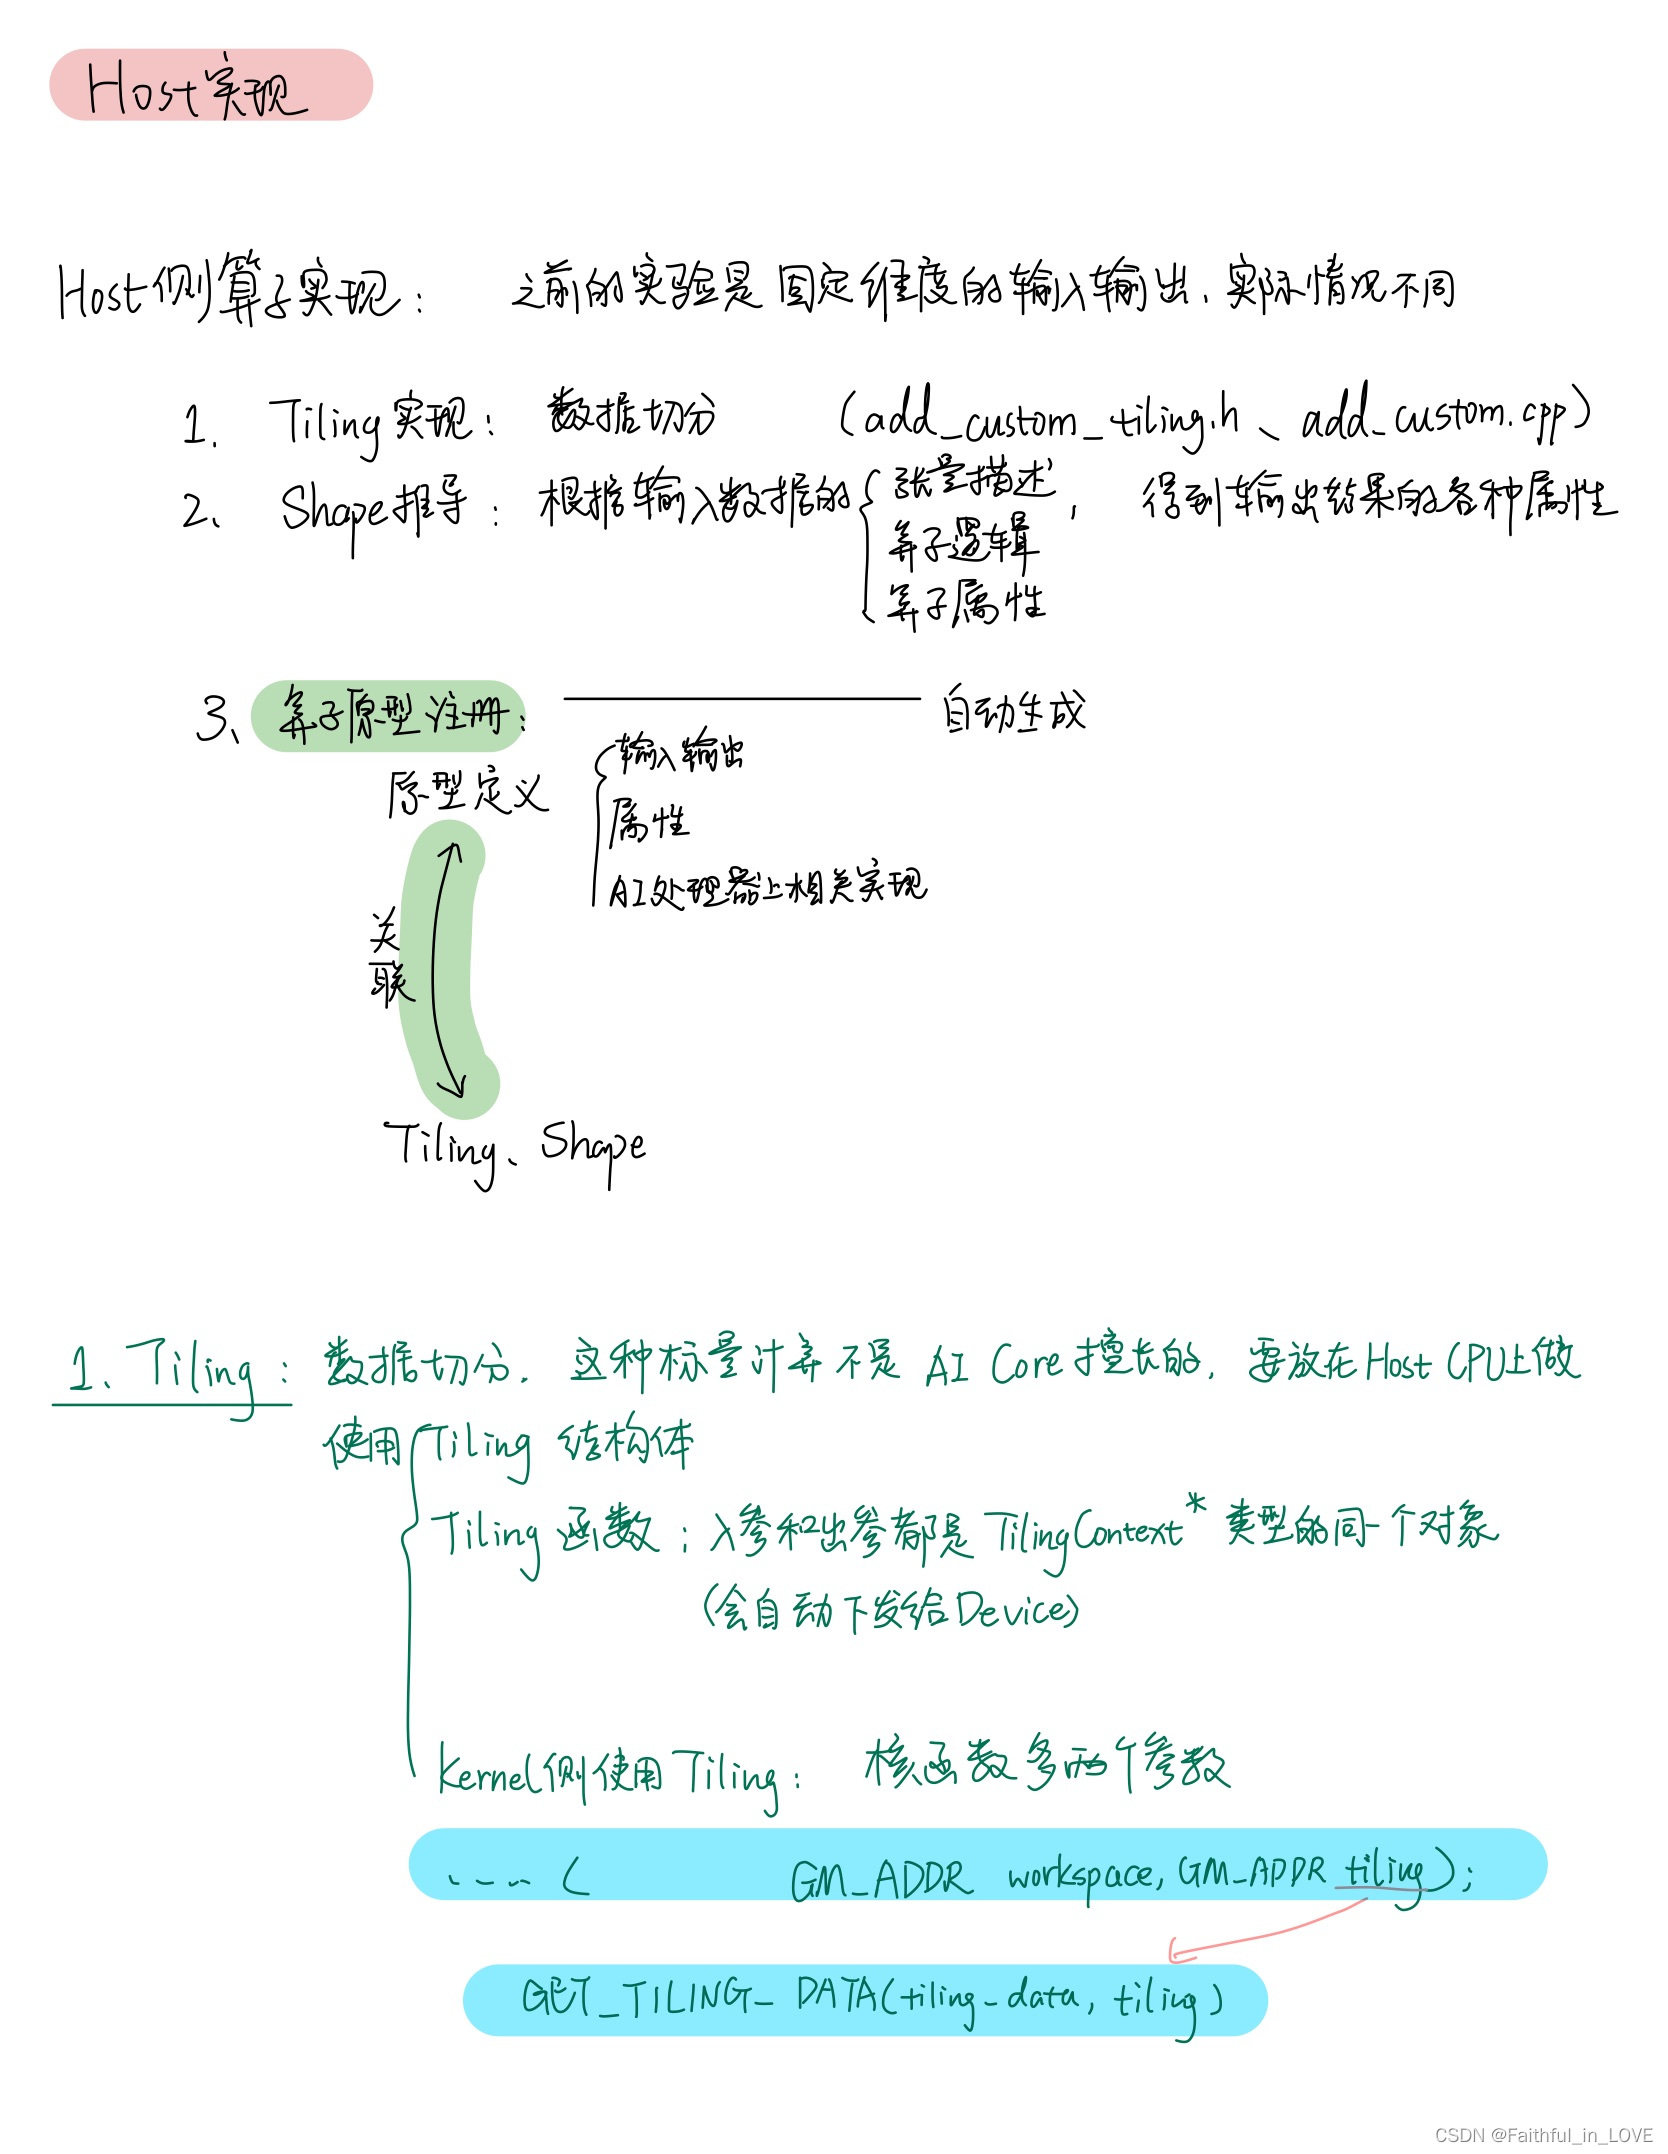 Host实现
Host侧算子实现： 之前的实验是固定维度的输入输出、实际情况不同
1、 Tiling实现： 数据切分 （add_custom_tiling.h 、 add_custom.cpp）
2、 Shape推导： 根据输入数据的 张量描述， 得到输出结果的各种属性
算子逻辑
算子属性
3、 算子原型注册： 自动生成
原型定义 输入输出
属性
AI处理器上相关实现
关联
Tiling、Shape
1、Tiling： 数据切分. 这种标量计算不是 AI Core 擅长的, 要放在Host CPU上做
使用 Tiling 结构体
Tiling 函数： 入参和出参都是 TilingContext* 类型的同一个对象
（会自动下发给Device）
Kernel侧使用 Tiling： 核函数多两个参数
..... ( GM_ADDR workspace, GM_ADDR tiling);
GET_TILING_DATA(tiling_data, tiling)
CSDN @Faithful_in_LOVE